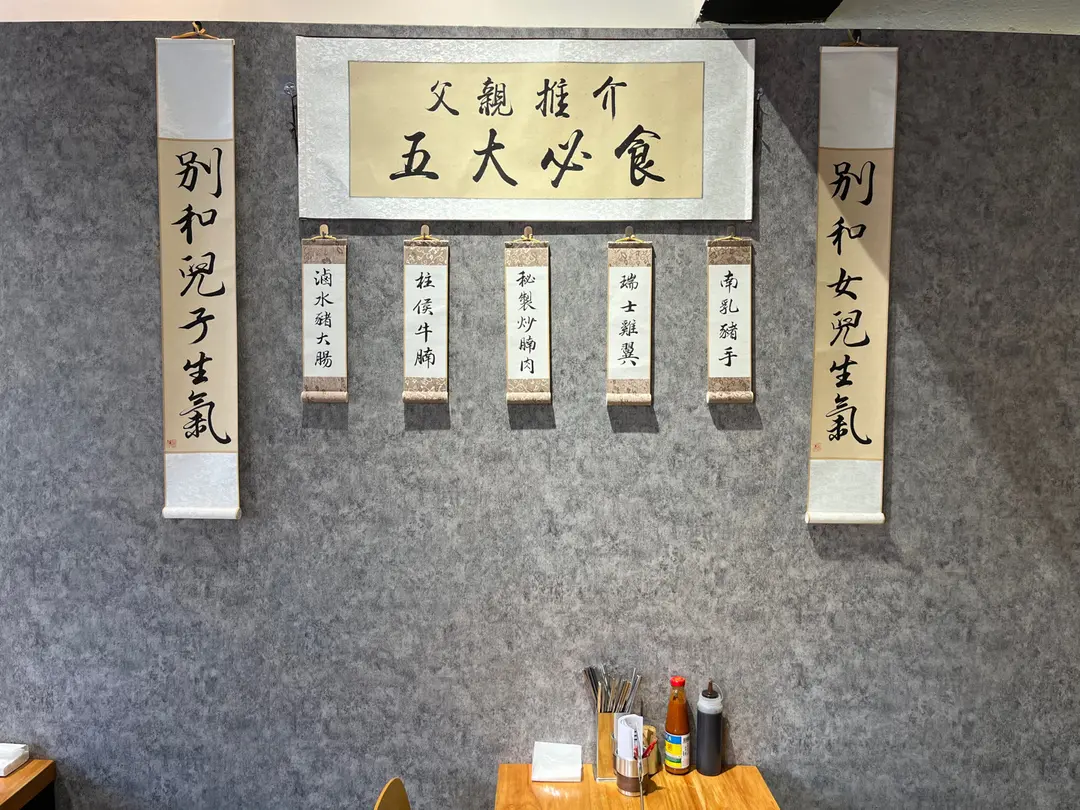 父親推介
五大必食
別和兒子生氣
滷水豬大腸
柱侯牛腩
秘製炒腩肉
瑞士雞翼
南乳豬手
別和女兒生氣